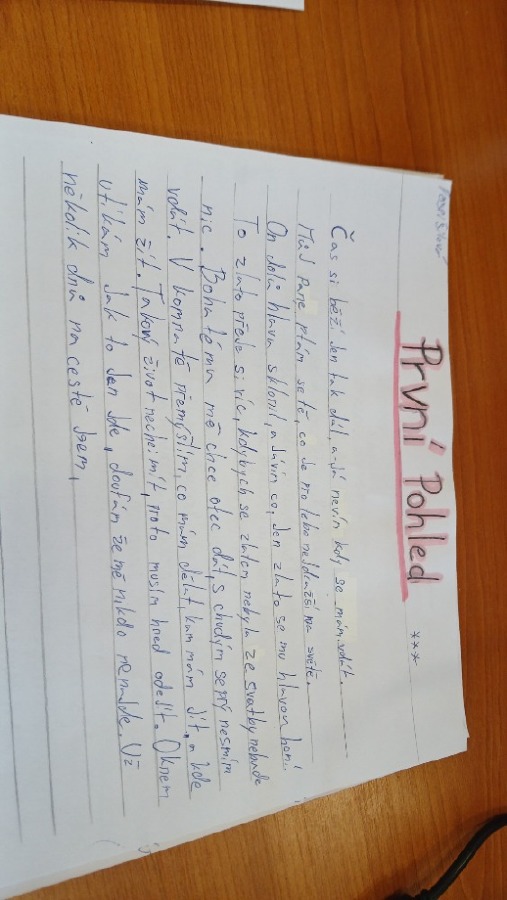 První Pohled ***
Čas si běží jen tak dál, a já nevím kdy se mám vdát.
Můj Pane ptám se tě, co je pro tebe nejdražší na světě.
On dolů hlavu sklonil, a já vím co, jen zlato se mu hlavou honí.
To zlato přeje si víc, kdybych se zlatem nebyla ze svatby nebude
nic. Bohatému mě chce otec dát, s chudým se prý nesmím
vdát. V komnatě přemýšlím, co mám dělat, kam mám jít, a kde
mám žít. Takový život nechci mít, proto musím hned odejít. Oknem
utíkám jak to jen jde, doufám že mě nikdo nenajde. Už
několik dnů na cestě jsem,